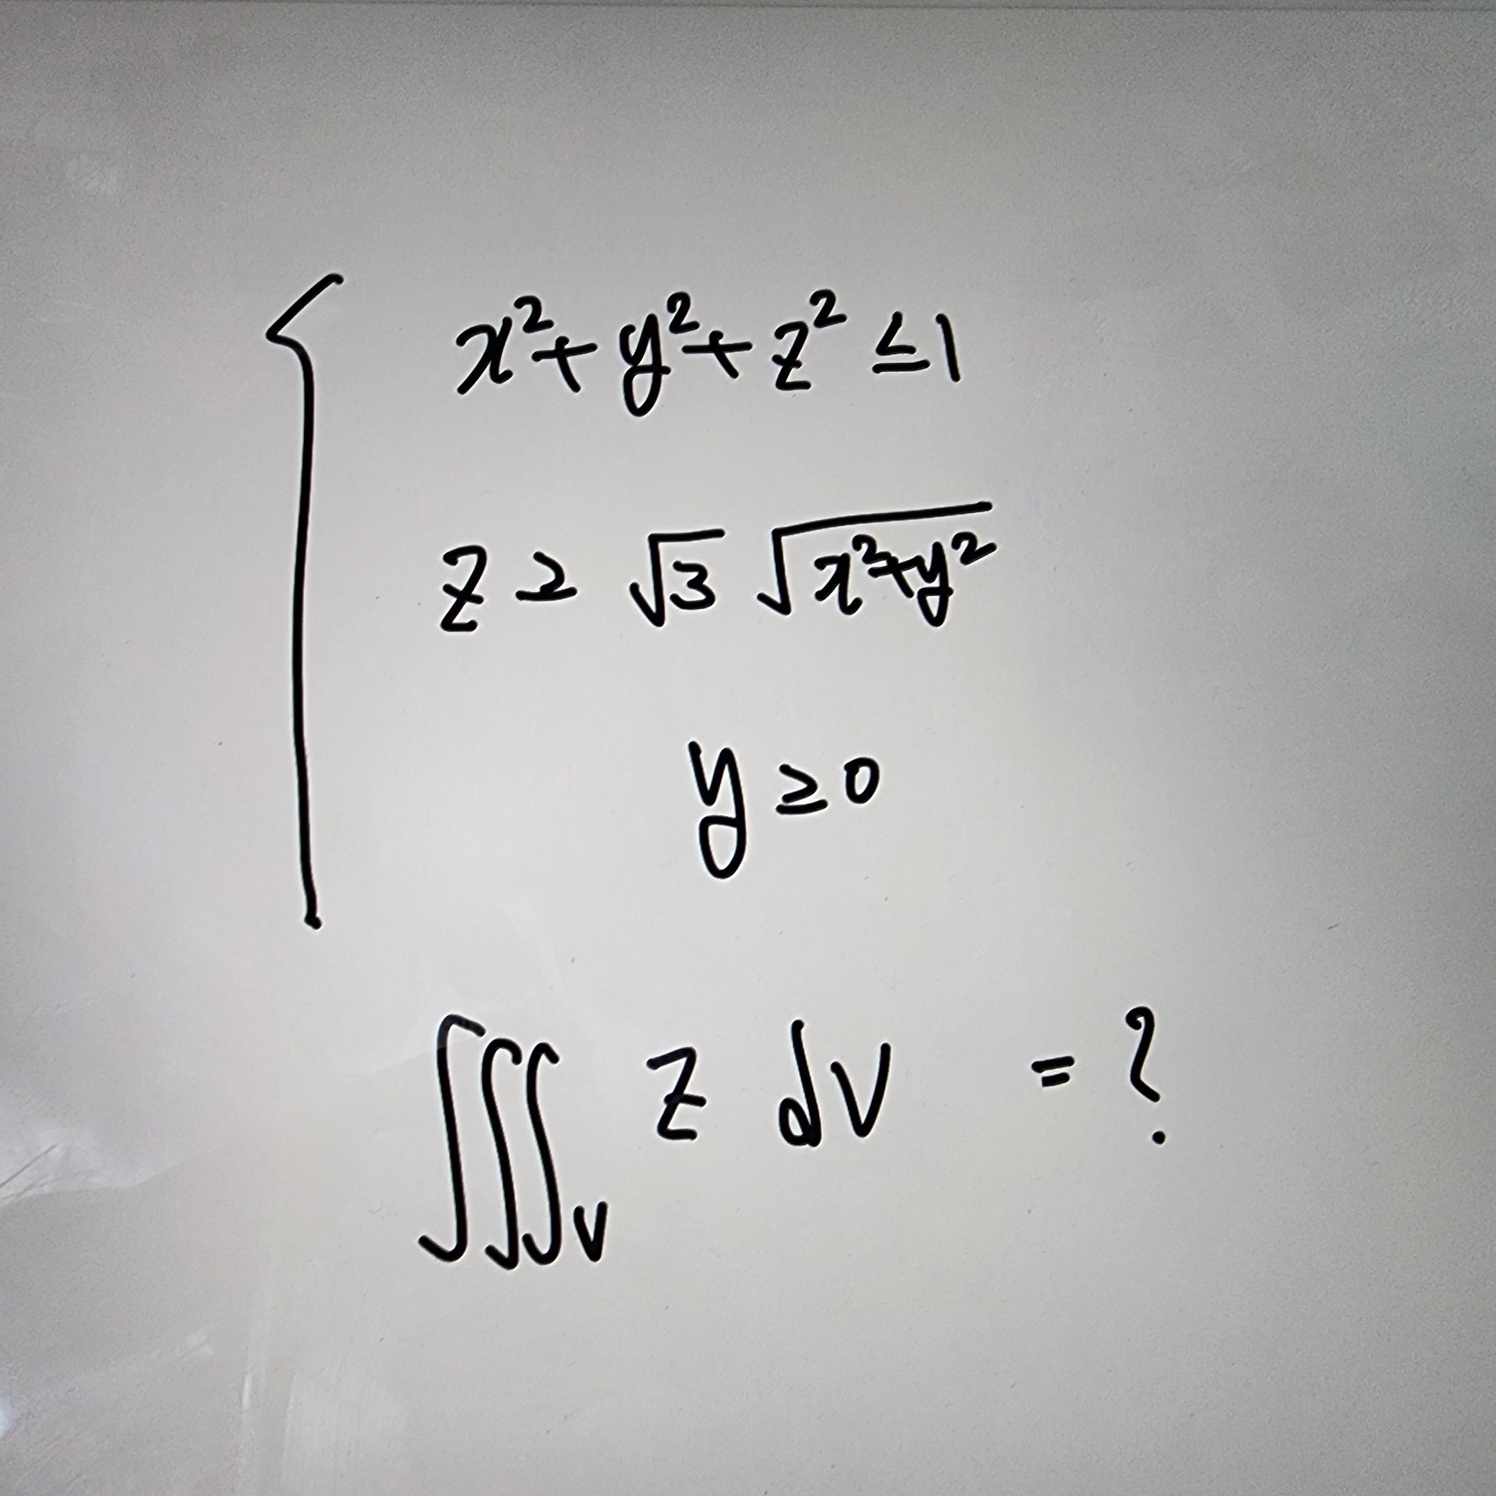 x²+y²+z² ≤1
z≥ √3 √x²+y²
y≥0
∭_V z dV = ?